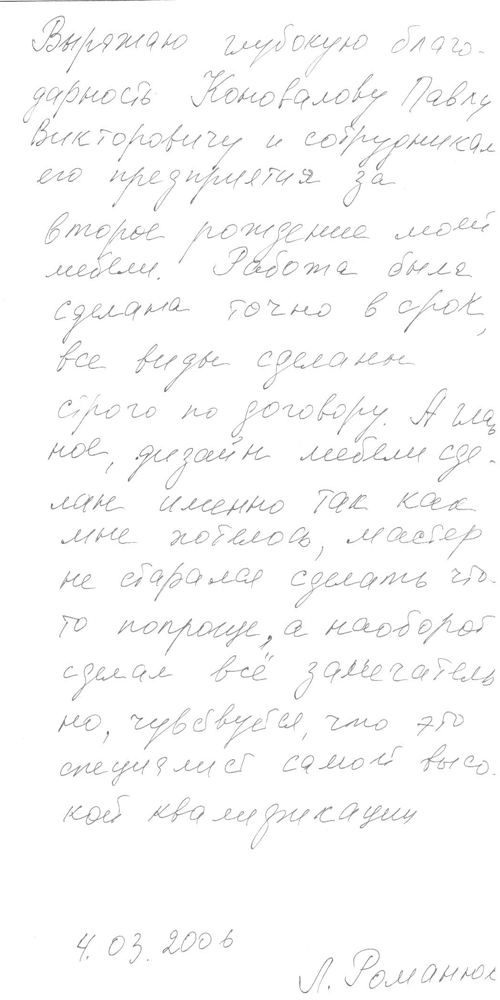 Выражаю глубокую благо-
дарность Коновалову Павлу
Викторовичу и сотрудникам
его предприятия за
второе рождение моей
мебели. Работа была
сделана точно в срок,
все виды сделаны
строго по договору. А глав
ное, дизайн мебели сде-
лан именно так как
мне хотелось, мастер
не старался сделать что-
то попроще, а наоборот
сделал всё замечатель
но, чувствуется, что это
специалист самой высо-
кой квалификации
4.03.2006
Л. Романюк